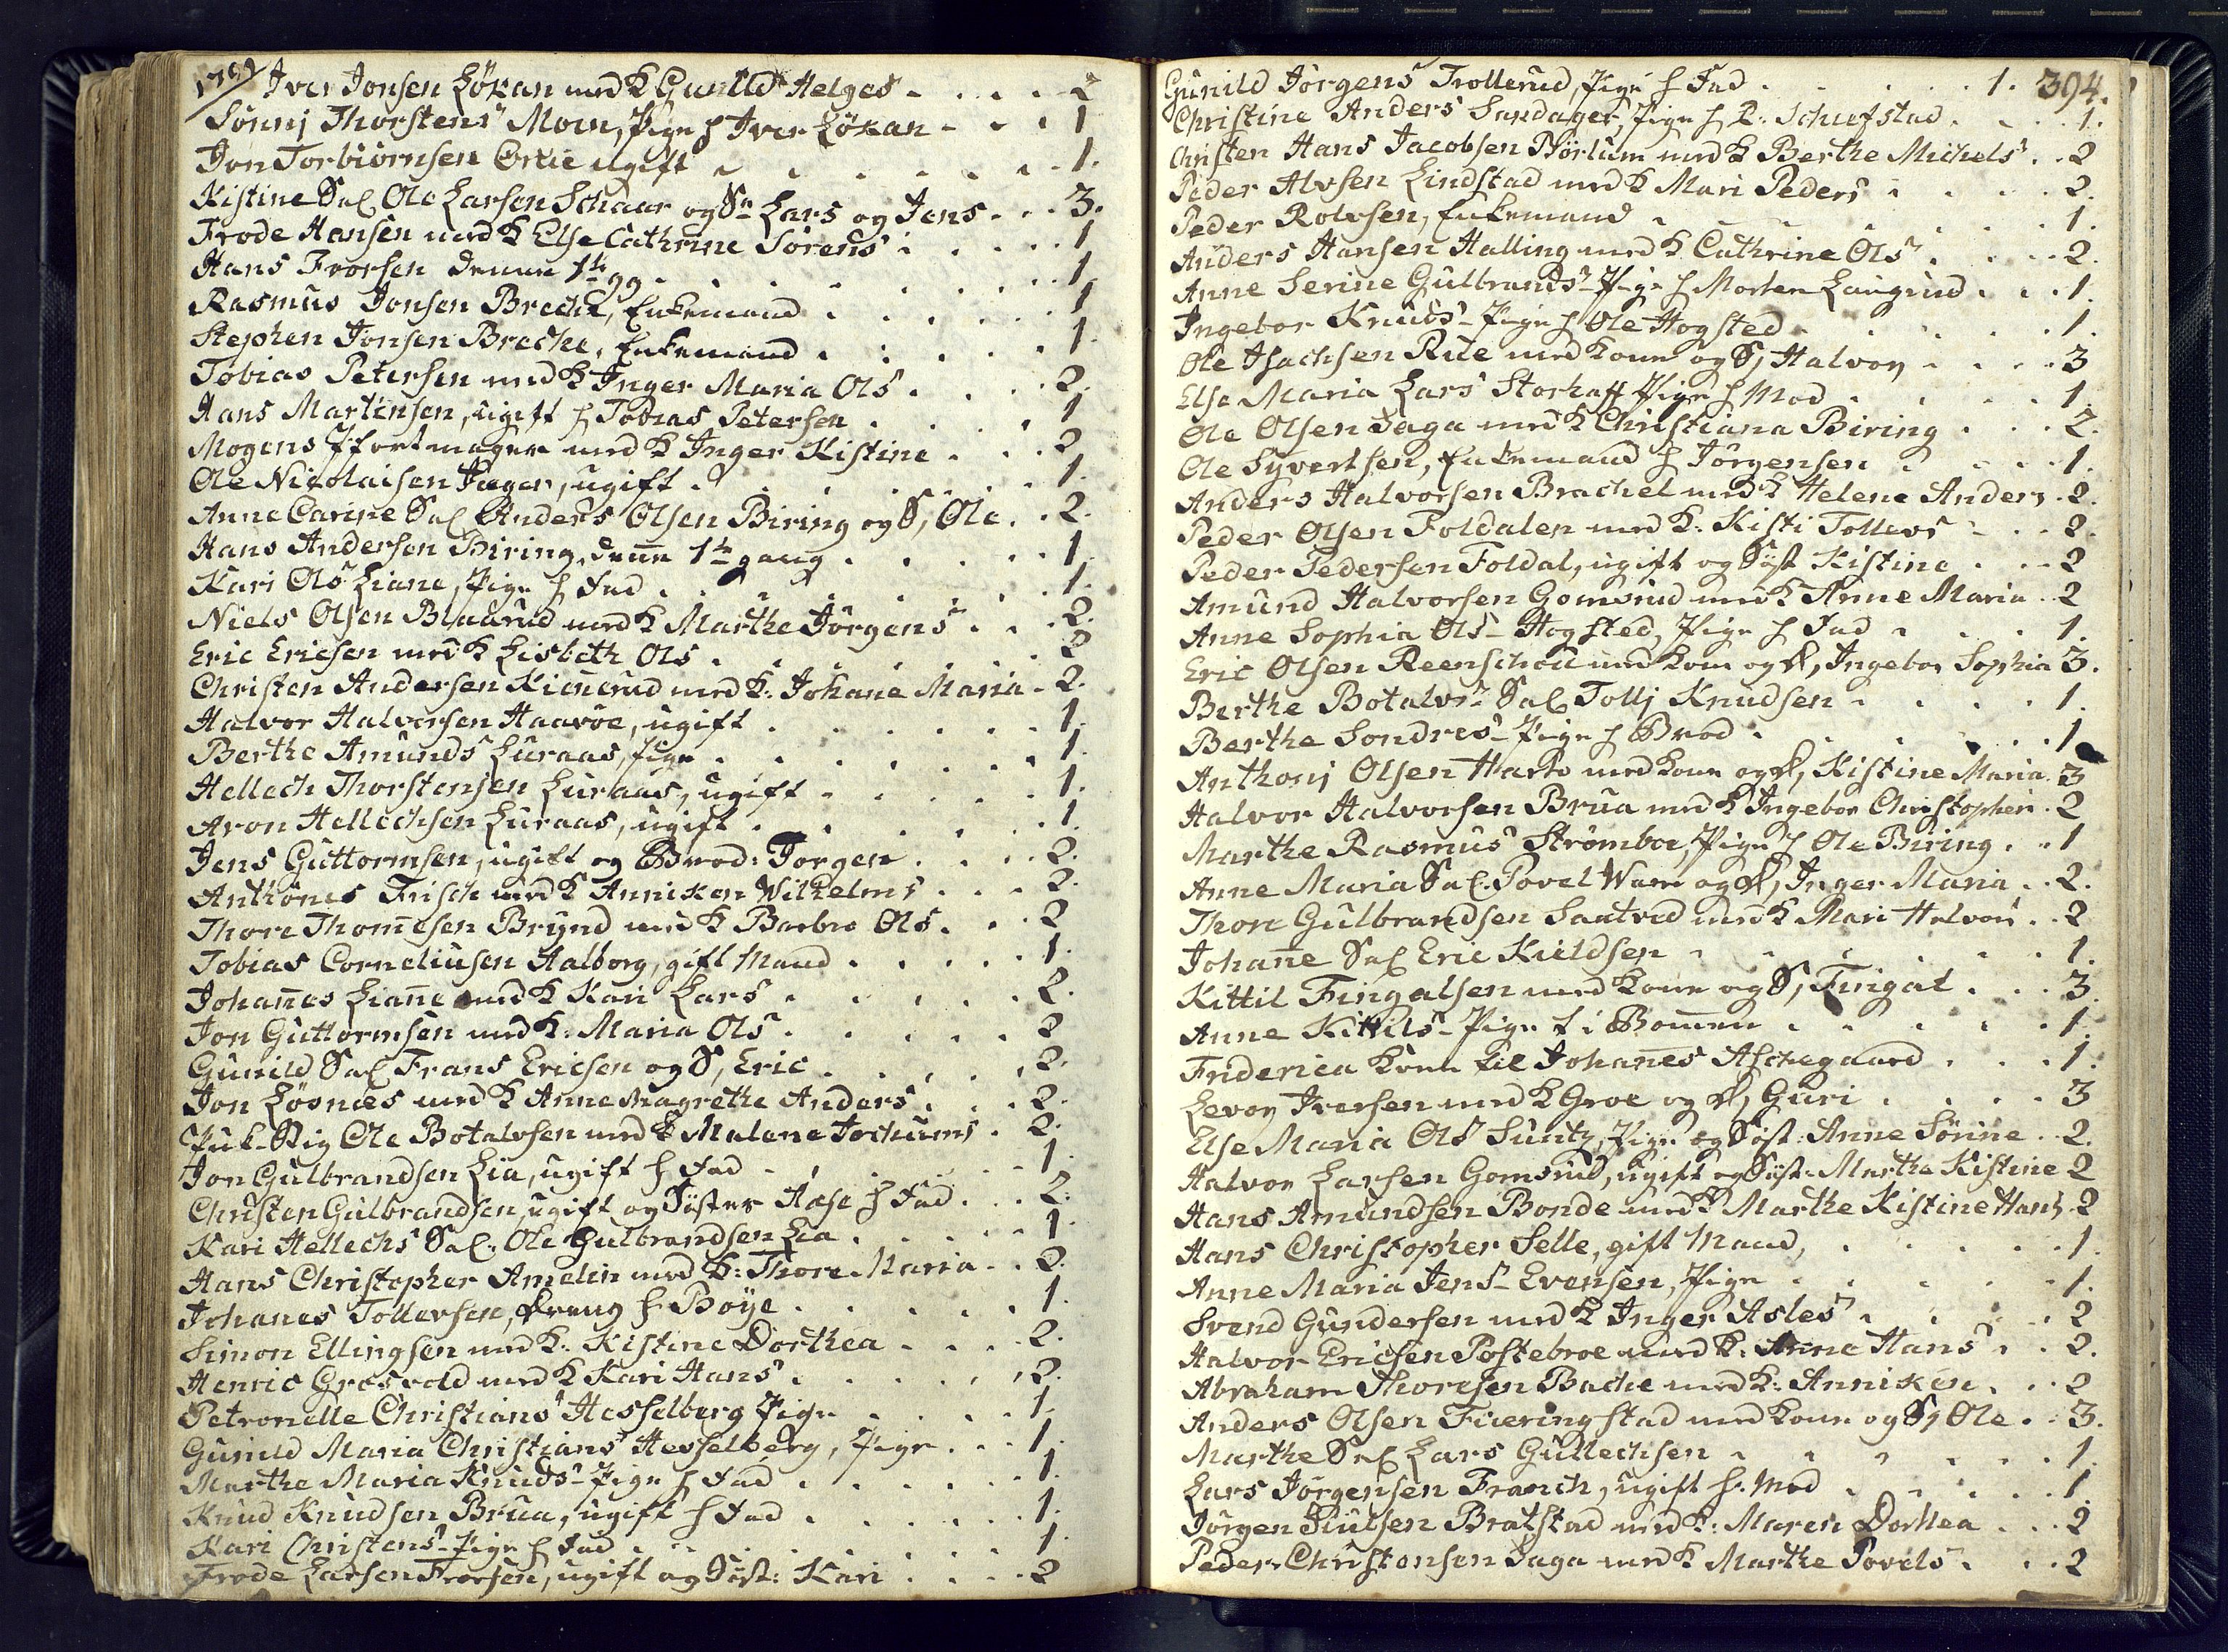 1799
Iver Jonsen Løkan med K Gunild Helges - . . . 2
Sønnj Thorstens Moen, Pige h Iver Løkan - . . 1
Jon Torbiørnsen Cortie ugift . . . . . . 1.
Kistine Sal Ole Larsen Schaar og Sn Lars og Jens - . . 3.
Frode Hansen med K Else Cathrine Sørens . . . . 1
Hans Frorsen denne 1te gg . . . . . . . 1.
Rasmus Jonsen Breche, Enkemand . . . . . 1
Stephen Jonsen Breche, Enkemand . . . . . 1.
Tobias Petersen med K Inger Maria Ols . . . . 2.
Hans Martinsen, ugift h Tobias Petersen . . . . 1
Mogens Pfortmager med K Inger Kistine . . . 2
Ole Nicolaisen Jæger, ugift . . . . . . 1.
Anne Carine Sal Anders Olsen Biring og S, Ole . . 2.
Hans Andersen Biring, denne 1te gang . . . . 1.
Kari Ols Liane, Pige h Fad . . . . . . 1.
Niels Olsen Blaarud med K Marthe Jørgens . . . 2.
Eric Ericsen med K Lisbeth Ols . . . . . 2
Christen Andersen Kierrud med K: Johane Maria - 2.
Halvor Halvorsen Haavøe, ugift . . . . . 1.
Berthe Amunds Luraas, Pige . . . . . . 1.
Hellech Thorstensen Luraas, ugift . . . . . 1.
Aron Hellechsen Luraas, ugift . . . . . . 1.
Jens Guttormsen, ugift og Brod: Torgen . . . . 2.
Anthones Frisch med K Anniken Wilhelms . . . 2.
Thore Thomesen Brynd med K Barbro Ols . . . 2
Tobias Corneliusen Aalborg, gift Mand . . . . 1.
Johannes Liane med K Kari Lars . . . . . 2.
Jon Guttormsen med K: Maria Ols . . . . . 2
Gunild Sal Frans Ericsen og S, Eric . . . . 2.
Jon Løsnæs med K Anne Magrethe Anders . . . 2.
Puk-Stig Ole Botalvsen med K Malene Jochums . 2.
Jon Gulbrandsen Lia, ugift h Fad . . . . . 1.
Christen Gulbrandsen, ugift og Søster Aase h Fad . . . 2.
Kari Hellechs Sal. Ole Gulbrandsen Lia . . . . 1
Hans Christopher Amelin med K: Thore Maria - . 2.
Johanes Tollevsen, Dreng h. Bøye . . . . . 1.
Simon Ellingsen med K: Kistine Dorthea . . . 2.
Henric Grosvold med K Kari Hans . . . . . 2.
Petronelle Christians Hesselberg Pige . . . . 1.
Gunild Maria Christians Hesselberg, Pige . . . 1.
Marthe Maria Knuds - Pige h Fad . . . . . 1.
Knud Knudsen Brua, ugift h Fad . . . . . 1.
Kari Christens - Pige h Fad . . . . . . 1
Frode Larsen Frorsen, ugift og Søst: Kari . . . . 2
394.
Gunild Jørgens Trollerud, Pige h Fad . . . . . 1.
Christine Anders Sandager, Pige h R. Schiefstad . . . 1.
Christen Hans Jacobsen Børlum med K Berthe Michels . . 2
Peder Alvsen Lindstad med K Mari Peders . . . . 2.
Peder Rolvsen, Enkemand . . . . . . 1.
Anders Hansen Halling med K. Cathrine Ols . . . . 2.
Anne Serine Gulbrands - Pige h Morten Laugrud . . . 1.
Ingebor Knuds - Pige h Ole Hogsted . . . . . 1.
Ole Isachsen Rue med Kone og S, Halvor . . . . 3
Else Maria Lars Storhaff Pige h Mod . . . . 1.
Ole Olsen Saga med K Christiana Biring . . . 2.
Ole Syvertsen, Enkemand h Jørgensen . . . . 1.
Anders Halvorsen Brachel med K Helene Anders . 2.
Peder Olsen Foldalen med K: Kisti Tollevs . . . 2.
Peder Pedersen Foldal, ugift og Søst Kistine . . . 2
Amund Halvorsen Gomsrud med K Anne Maria . . 2
Anne Sophia Ols - Hogsted, Pige h Fad . . . . 1.
Eric Olsen Reenschou med Kone og D, Ingebor Sophia 3.
Berthe Botalvs - Sal Tollj Knudsen . . . . . 1.
Berthe Sondres - Pige h Brod . . . . . . 1
Anthonj Olsen Harbo med Kone og D, Kistine Maria . 3
Halvor Halvorsen Brua med K Ingebor Christophers . 2
Marthe Rasmus Strømboe, Pige h Ole Biring . . 1
Anne Maria Sal. Povel Warn og D, Inger Maria . . 2.
Thore Gulbrandsen Saatved med K Mari Halvors . . 2
Johane Sal Eric Kieldsen . . . . . . 1.
Kittil Fingalsen med Kone og S, Fingal . . . 3.
Anne Kittils - Pige t i Bommen . . . . . . 1.
Friderica Kone til Johanes Aschegaard . . . 1.
Levor Iversen med K Groe og D, Guri . . . . 3
Else Maria Ols Suntz, Pige og Søst: Anne Sørine . . 2.
Halvor Larsen Gomsrud, ugift og Søst: Marthe Kistine 2
Hans Amundsen Bonde med K Marthe Kistine Hans . 2
Hans Christopher Selle, gift Mand, . . . . . 1.
Anne Maria Jens - Evensen, Pige . . . . . 1.
Svend Gundersen med K Inger Asles . . . . 2
Halvor Ericsen Postebroe med K: Anne Hans . . 2.
Abraham Thoresen Bache med K: Anniken . . . 2
Anders Olsen Fieringstad med Kone og S, Ole . . 3.
Marthe Sal Lars Gullechsen . . . . . . 1.
Lars Jørgensen Franch, ugift h. Mod . . . . . 1
Jørgen Siulsen Bratstad med K: Maren Dorthea . . . 2
Peder Christensen Saga med K Marthe Povels . . . 2